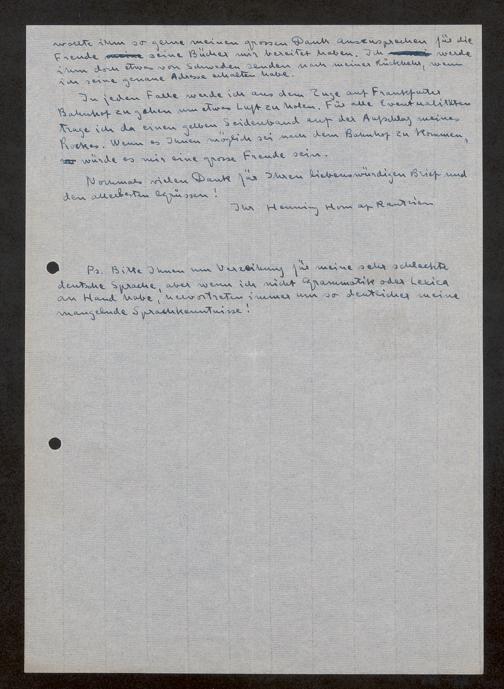 wollte ihm so gerne meinen grossen Dank aussprechen für die
Freude seine Bücher mir bereitet haben. Ich werde
ihm doch etwas von Schweden senden nach meiner Rückkehr, wenn
ich seine genaue Adresse erhalten habe.
In jedem Falle werde ich aus dem Zuge auf Frankfurter
Bahnhof zu gehen um etwas Luft zu holen. Für alle Eventualitäten
trage ich da einen gelben Seidenband auf der Aufschlag meines
Rockes. Wenn es Ihnen möglich sei nach dem Bahnhof zu kommen,
würde es mir eine grosse Freude sein.
Nochmals vielen Dank für Ihren liebenswürdigen Brief und
den allerbesten Grüssen!
Ihr Henning Horn af Rantzien
Ps. Bitte Ihnen um Verzeihung für meine sehr schlechte
deutsche Sprache, aber wenn ich nicht Grammatik oder Lexica
an Hand habe, hervortreten immer um so deutlicher meine
mangelnde Sprachkenntnisse!